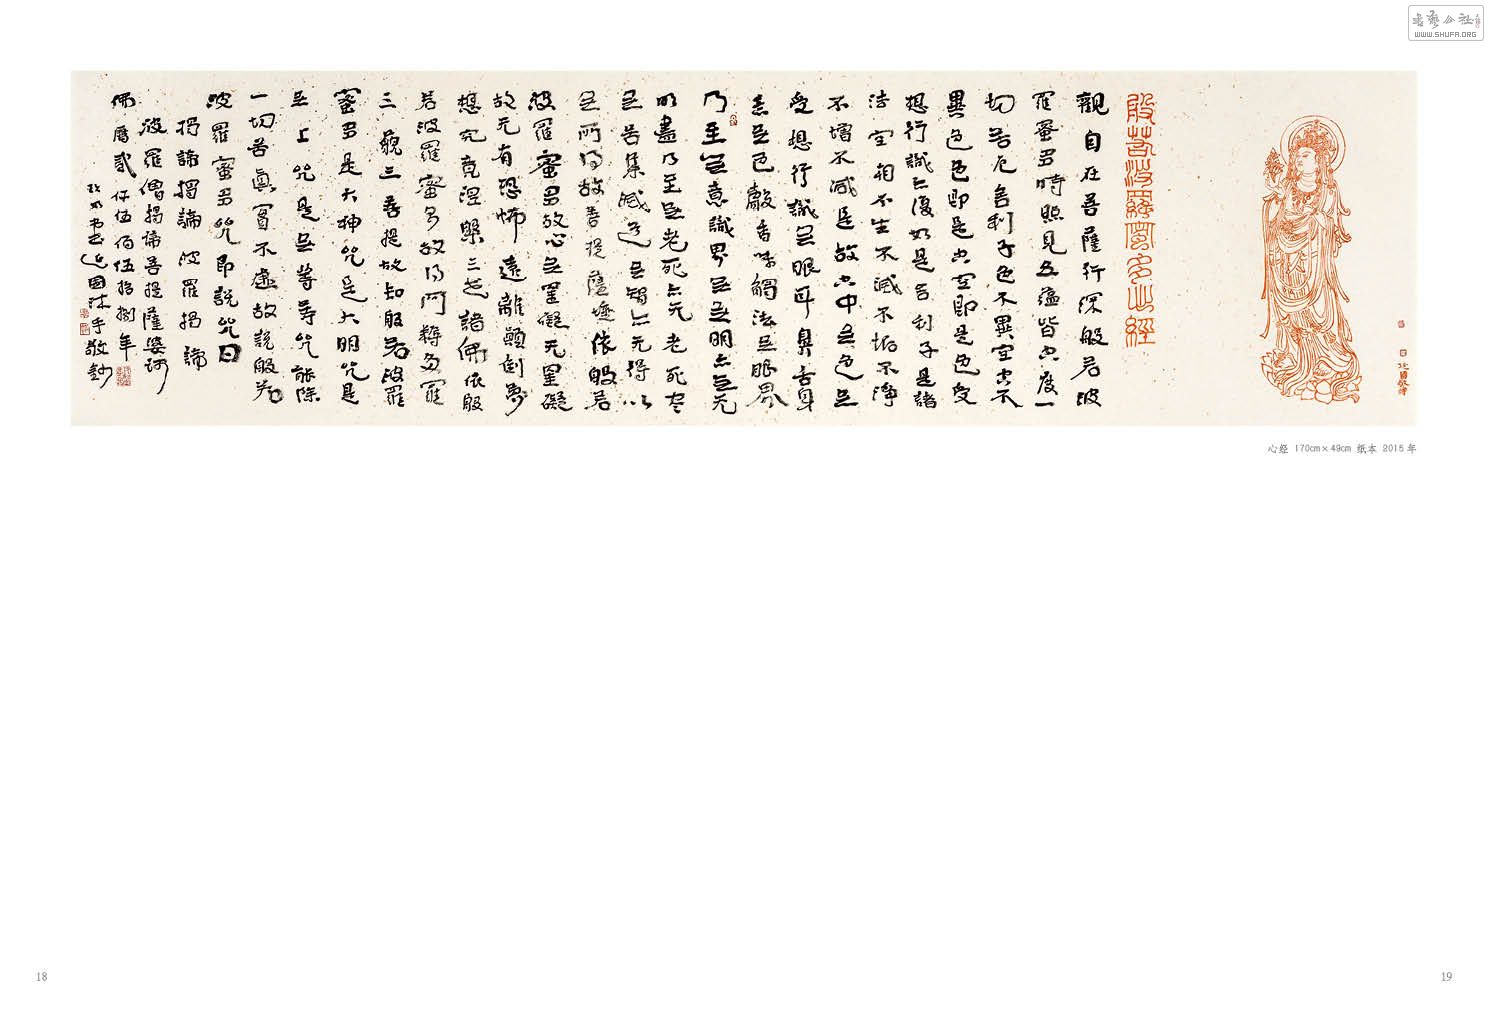 般若波羅蜜多心經
觀自在菩薩行深般若波
羅蜜多時照見五蘊皆空度一
切苦厄舍利子色不異空空不
異色色即是空空即是色受
想行識亦復如是舍利子是諸
法空相不生不滅不垢不淨
不增不減是故空中无色无
受想行識无眼耳鼻舌身
意无色聲香味觸法无眼界
乃至无意識界无无明亦无无
明盡乃至无老死亦无老死尽
无苦集滅道无智亦无得以
无所得故菩提薩埵依般若
波羅蜜多故心无罣礙无罣礙
故无有恐怖遠離顛倒夢
想究竟涅槃三世諸佛依般
若波羅蜜多故得阿耨多羅
三藐三菩提故知般若波羅
蜜多是大神咒是大明咒是
无上咒是无等等咒能除
一切苦真實不虛故說般若
波羅蜜多咒即說咒曰
揭諦揭諦波羅揭諦
波羅僧揭諦菩提薩婆訶
佛曆貳仟伍佰伍拾捌年
國沐手敬鈔
心经 170cm×49cm 纸本 2015年
18
19
WWW.SHUFA.ORG